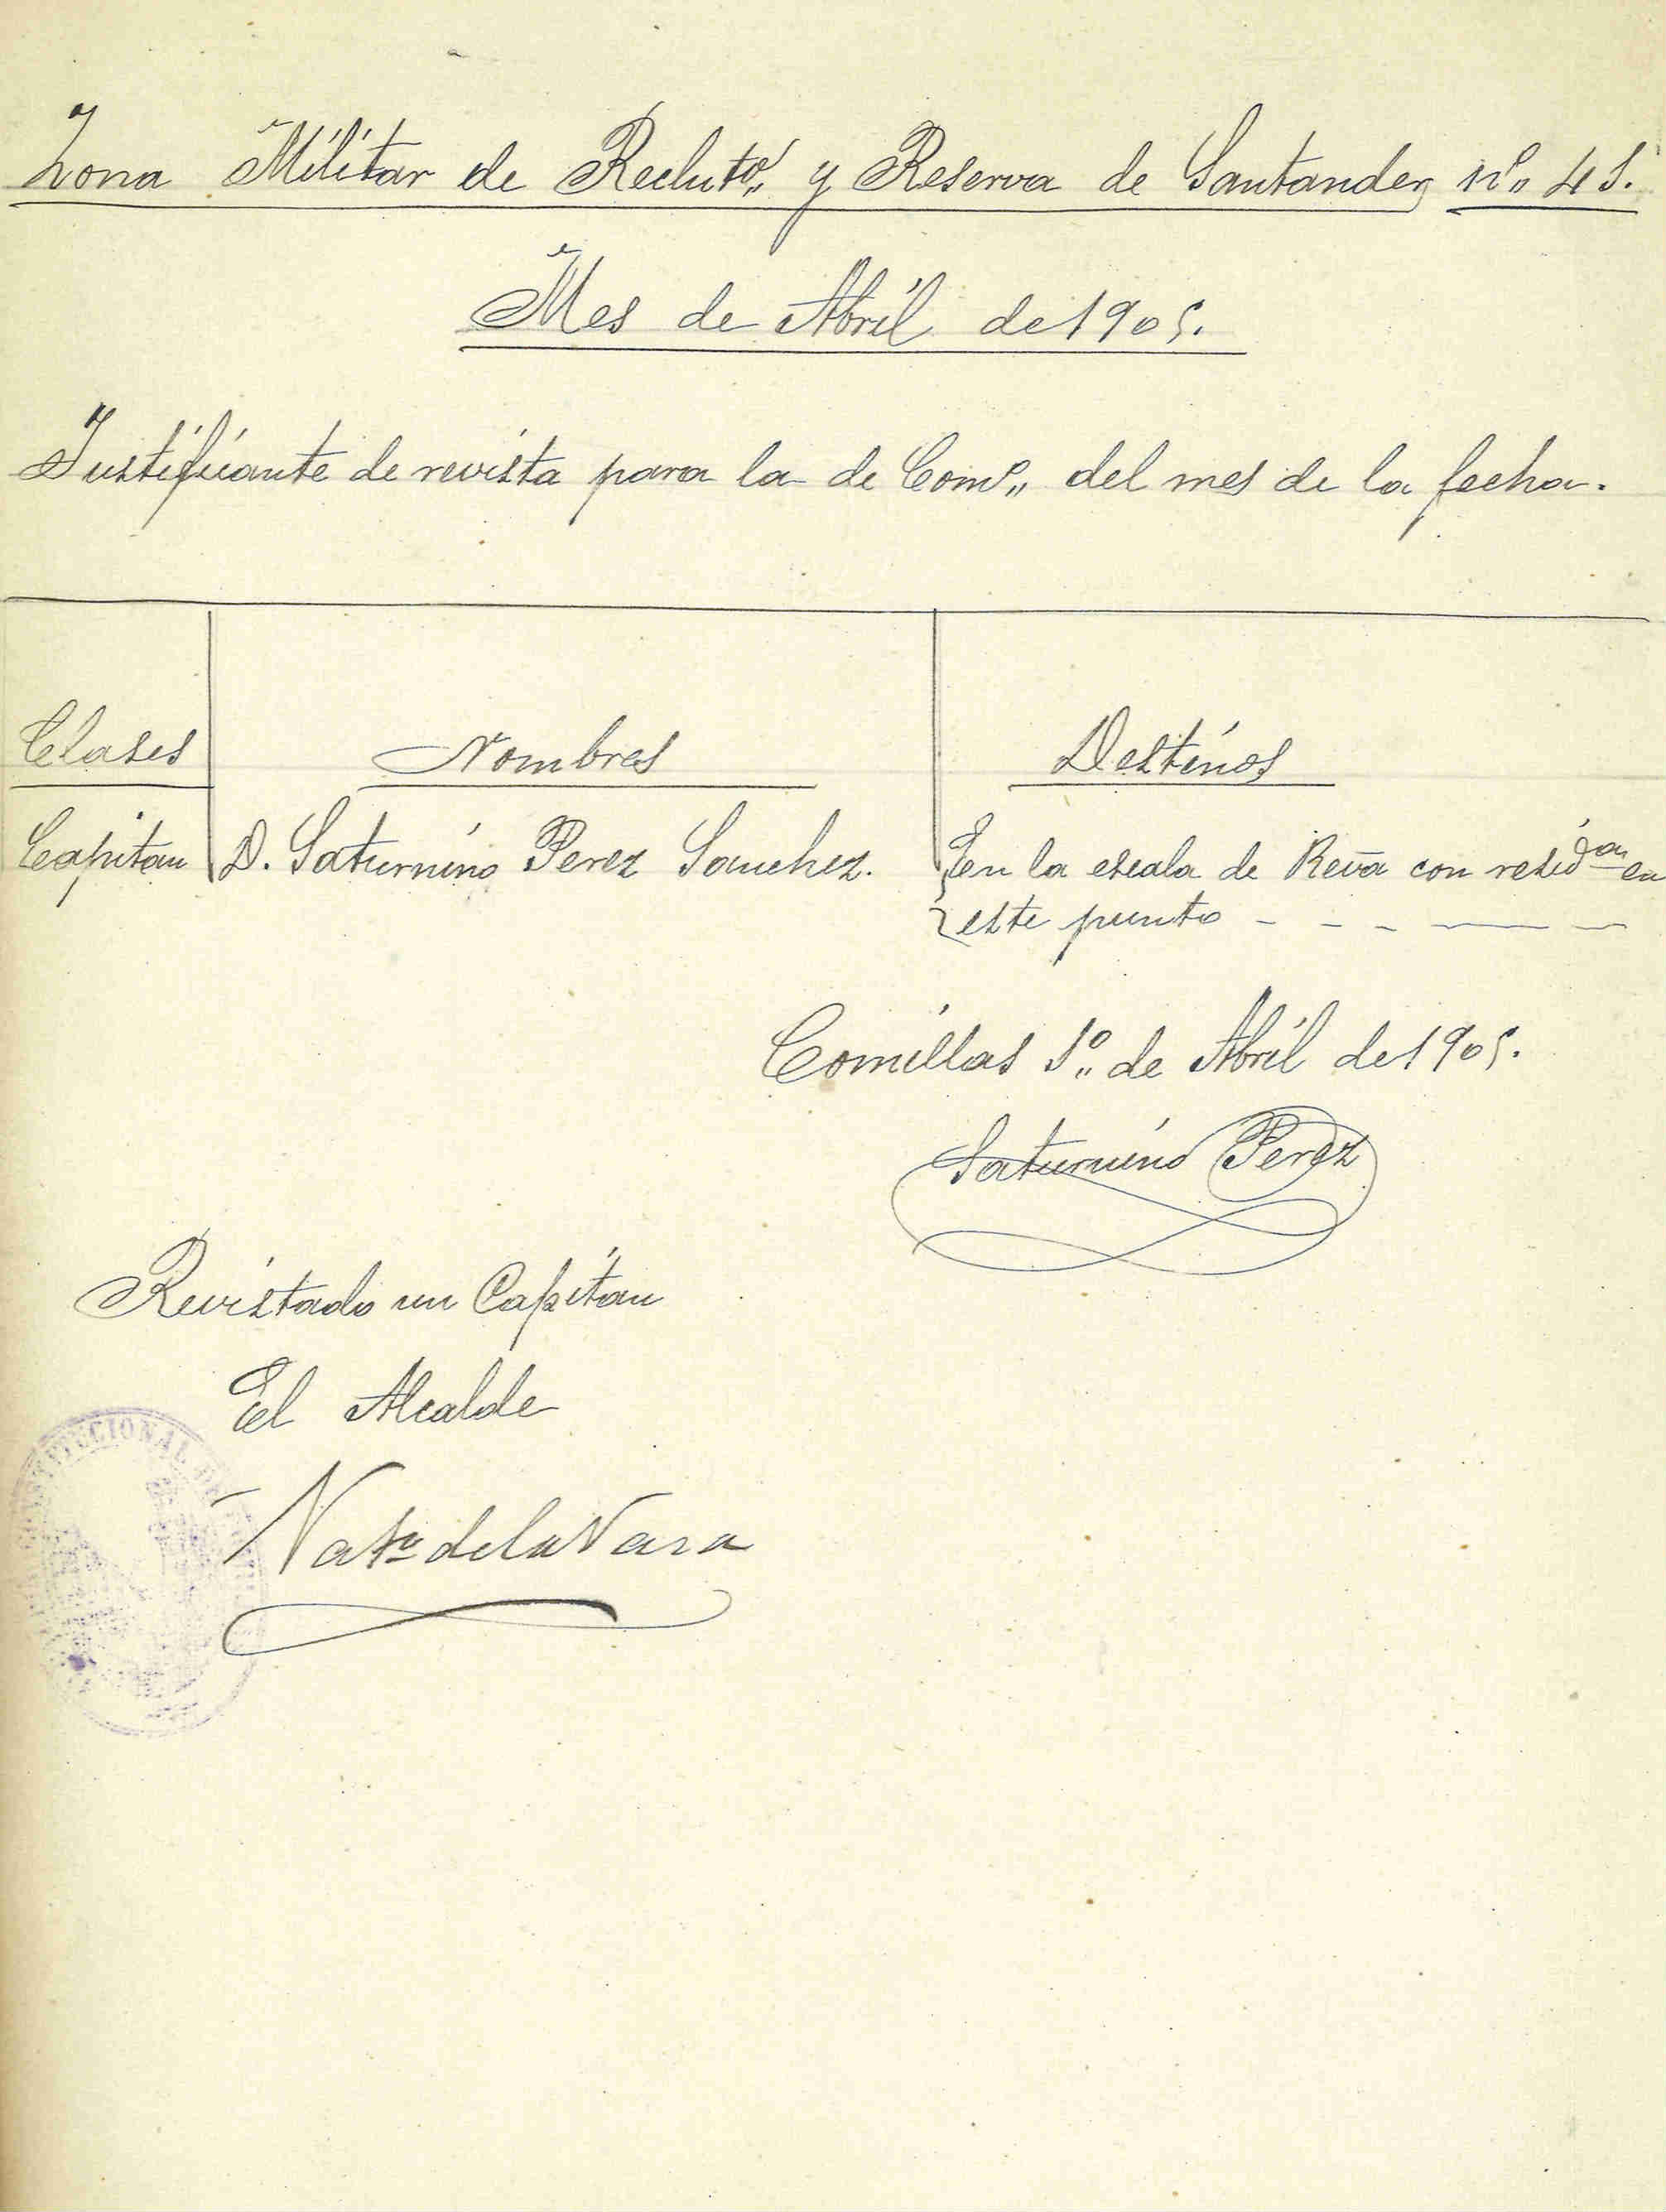 Zona Militar de Reclutº y Reserva de Santander nº 41.
Mes de Abril de 1905.
Justificante de revista para la de Comº del mes de la fecha.
Clases Nombres Destinos
Capitan D. Saturnino Perez Sanchez. En la escala de Revª con residᵃⁿ en
este punto - - - - -
Comillas 1º de Abril de 1905.
Saturnino Perez
Revistado un Capitan
El Alcalde
de la Vara